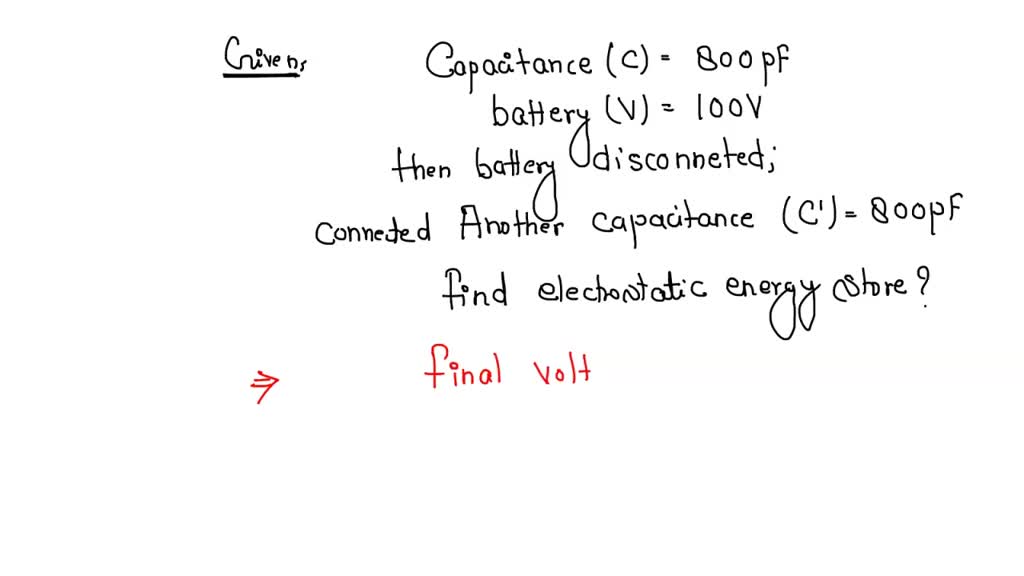 Given, Capacitance (C) = 800pF
battery (V) = 100V
then battery disconneted;
connected Another capacitance (C') = 800pF
find electrostatic energy store?
⇒ final volt